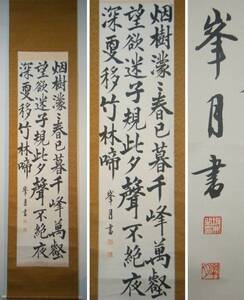 烟樹濛々春已暮千峰萬壑
望欲迷子規此夕聲不絶夜
深更移竹林啼
峯月書
烟樹濛々春已暮千峰萬壑
望欲迷子規此夕聲不絶夜
深更移竹林啼
峯月書
峯月書